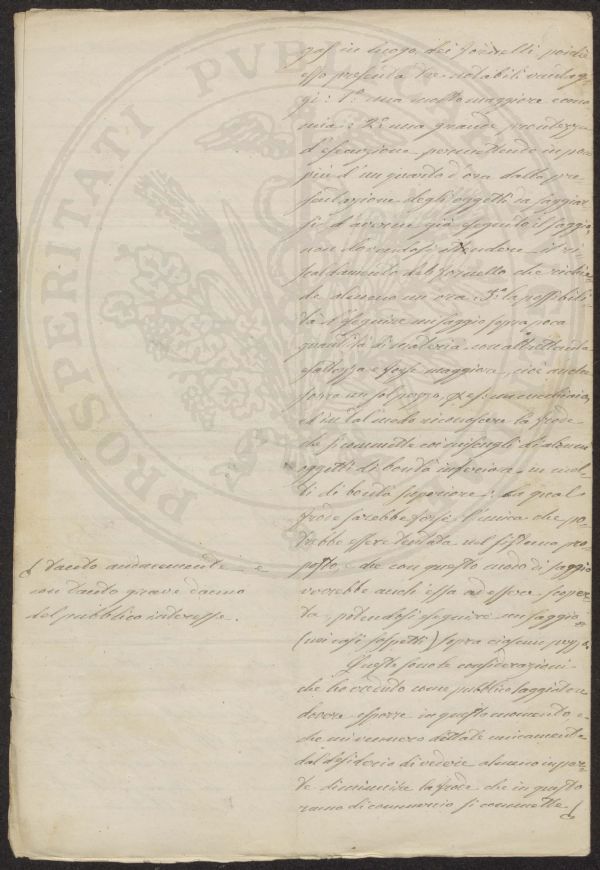 gas in luogo dei fornelli poichè
esso presenta tre notabili vantag-
gi: 1.º una molto maggiore econo
mia: 2.º una grande prontezza
d'esecuzione permettendo in poco
più d'un quarto d'ora dalla pre-
sentazione degli oggetti da saggiar
si d'averne già eseguito il saggio
non dovendosi attendere il ri-
scaldamento del fornello che richie-
de almeno un ora: 3.º la possibili-
tà d'eseguire un saggio sopra poca
quantità di materia con altrettanta
esattezza e forse maggiore, cioè anche
sopra un sol pezzo, p. es: un cucchiaio,
ed in tal modo riconoscere la frode
che si commette coi miscugli di alcuni
oggetti di bontà inferiore in mol-
ti di bontà superiore; la qual
frode sarebbe forse l'unica che po-
trebbe essere tentata nel sistema pro-
posto, e che con questo modo di saggio
verrebbe anch'essa ad essere scoper-
ta, potendosi eseguire un saggio
(nei casi sospetti) sopra ciascun pezzo.
Queste sono le considerazioni
che ho creduto come pubblico saggiatore
dovere esporre in questo momento, e
che mi vennero dettate unicamente
dal desiderio di vedere almeno in par-
te diminuire la frode che in questo
ramo di commercio si commette
tanto audacemente e
con tanto grave danno
del pubblico interesse.
PROSPERITATI PVBLICAE